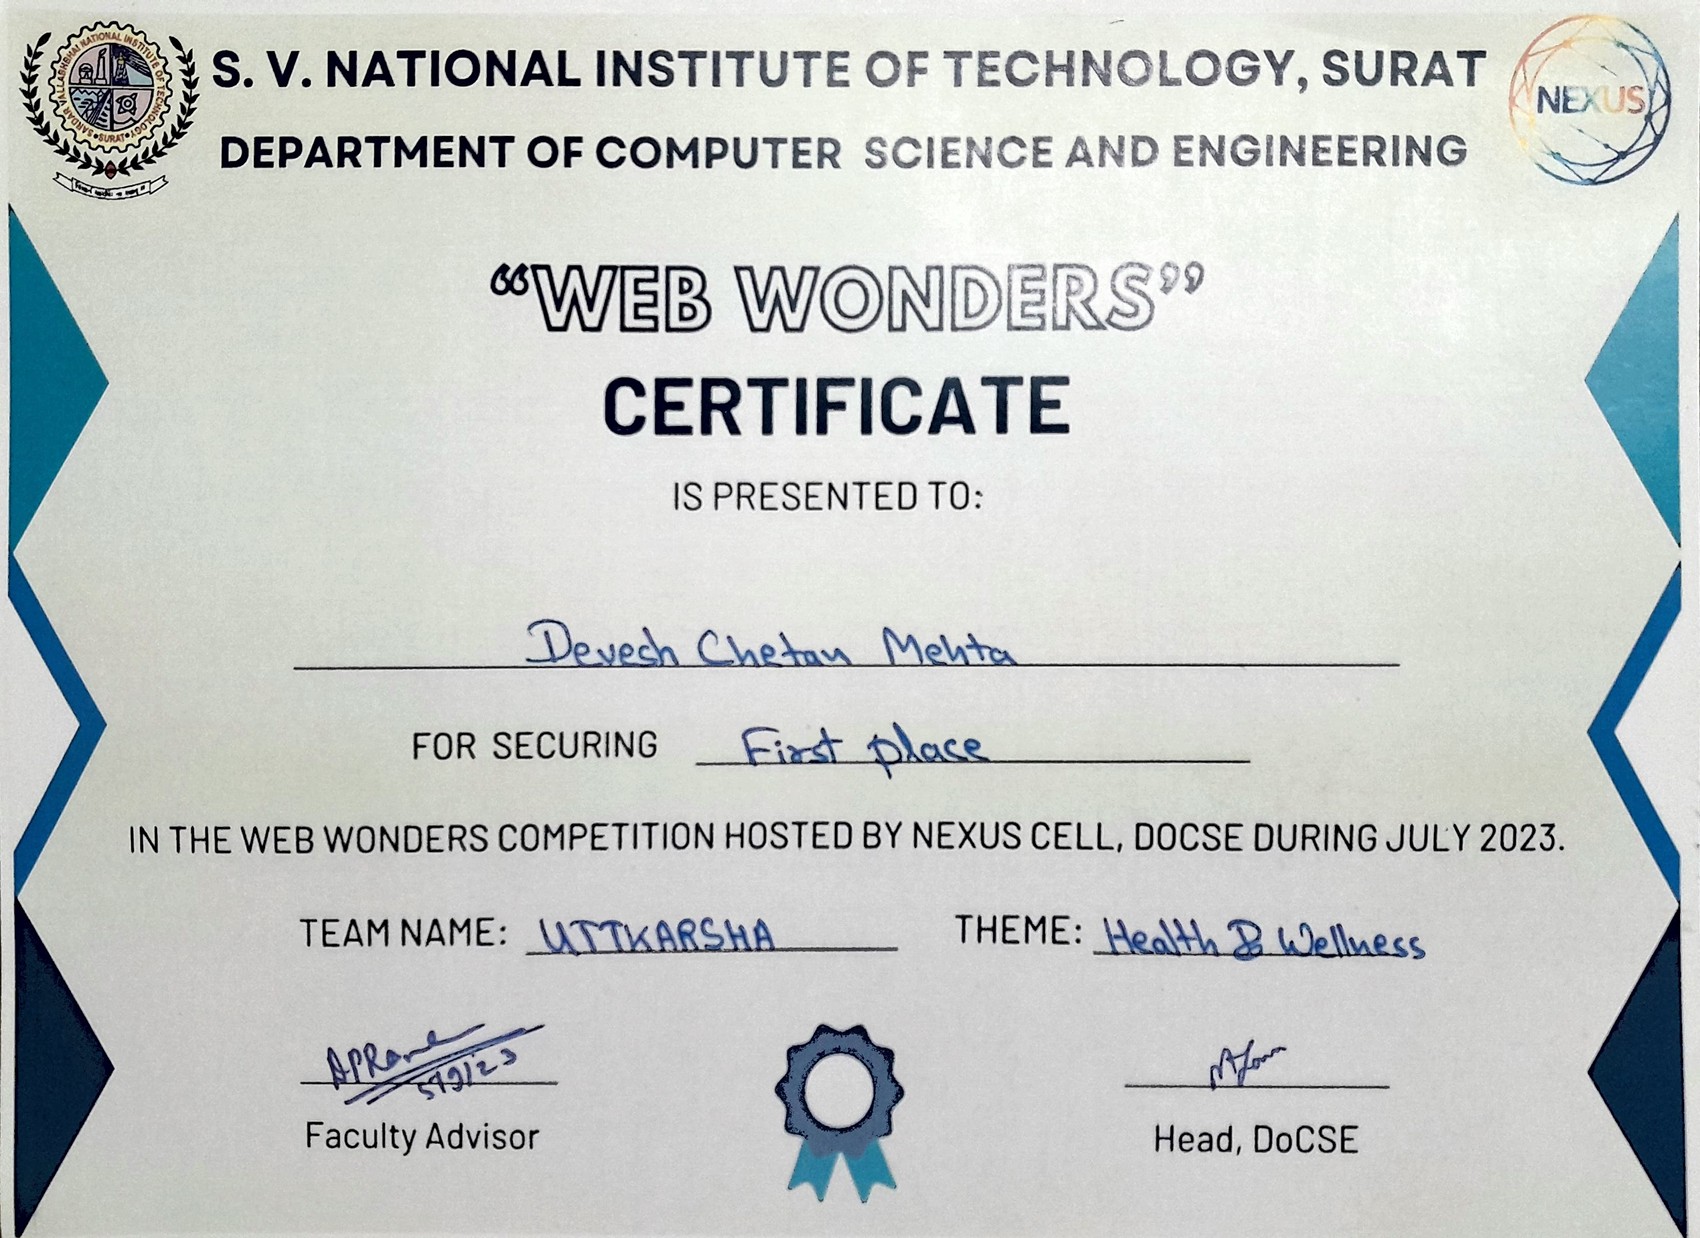 S. V. NATIONAL INSTITUTE OF TECHNOLOGY, SURAT
DEPARTMENT OF COMPUTER SCIENCE AND ENGINEERING
SARDAR VALLABHBHAI NATIONAL INSTITUTE OF TECHNOLOGY
SURAT
NEXUS
“WEB WONDERS”
CERTIFICATE
IS PRESENTED TO:
Devesh Chetan Mehta
FOR SECURING First place
IN THE WEB WONDERS COMPETITION HOSTED BY NEXUS CELL, DOCSE DURING JULY 2023.
TEAM NAME: UTTKARSHA THEME: Health & Wellness
5/9/23
Faculty Advisor Head, DoCSE